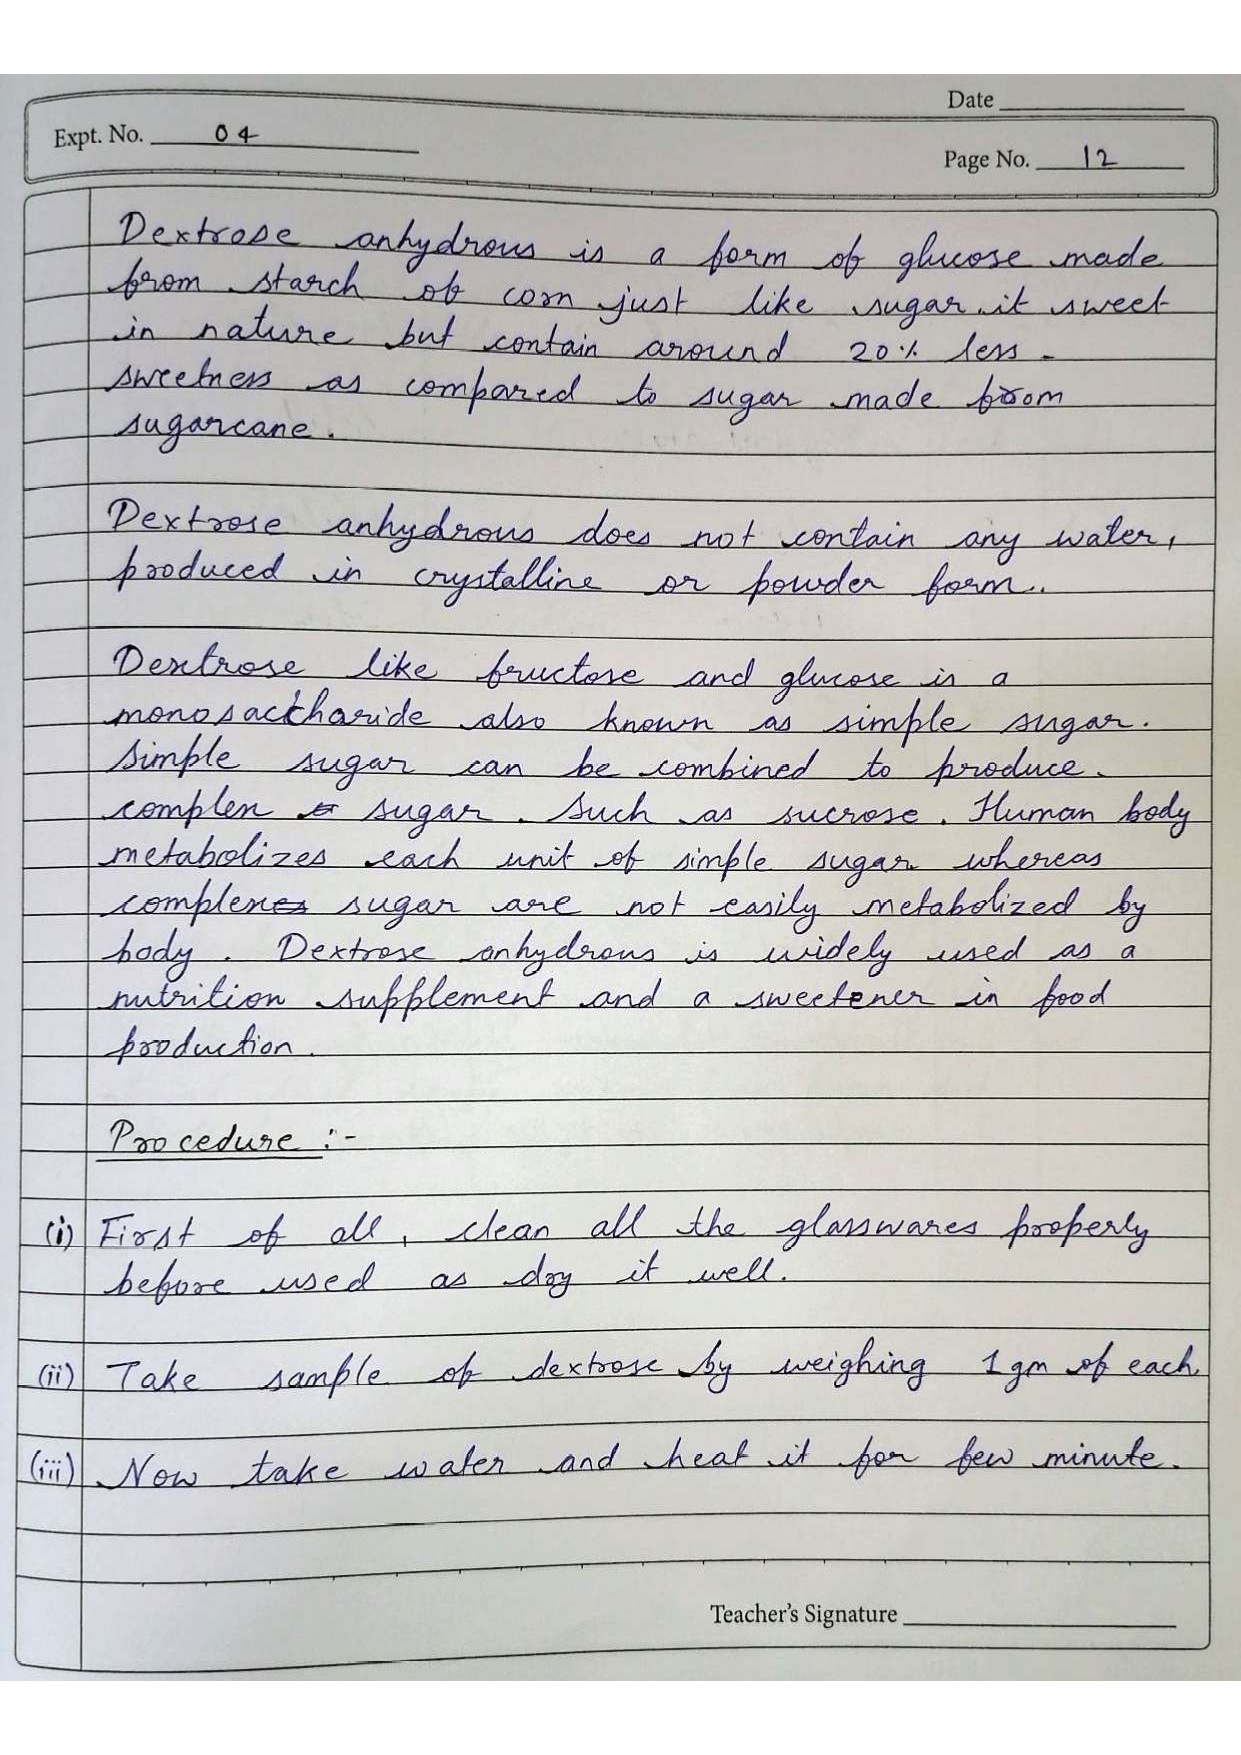 Date
Expt. No. 04
Page No. 12
Dextrose anhydrous is a form of glucose made
from starch of corn just like sugar. it sweet
in nature but contain around 20% less
sweetness as compared to sugar made from
sugarcane.
Dextrose anhydrous does not contain any water,
produced in crystalline or powder form..
Dextrose like fructose and glucose is a
monosaccharide also known as simple sugar.
Simple sugar can be combined to produce.
complex sugar. Such as sucrose. Human body
metabolizes each unit of simple sugar whereas
complex sugar are not easily metabolized by
body. Dextrose anhydrous is widely used as a
nutrition supplement and a sweetener in food
production.
Procedure :-
(i) First of all, clean all the glasswares properly
before used as dry it well.
(ii) Take sample of dextrose by weighing 1 gm of each.
(iii) Now take water and heat it for few minute.
Teacher's Signature